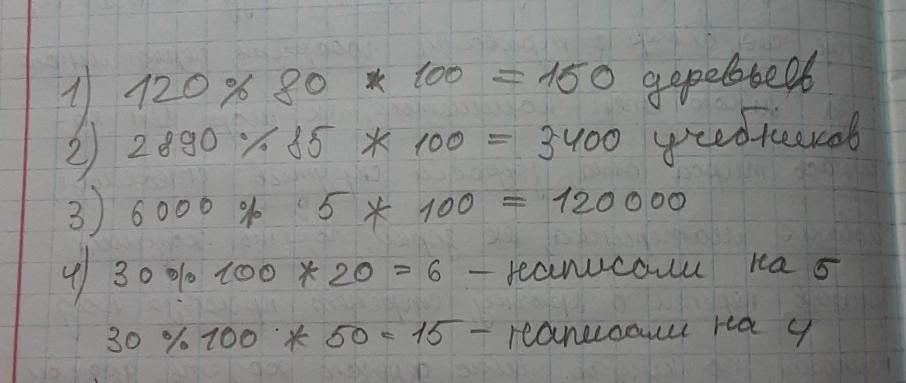 1) 120 % 80 * 100 = 150 деревьев
2) 2890 % 85 * 100 = 3400 учебников
3) 6000 % 5 * 100 = 120000
4) 30 % 100 * 20 = 6 - написали на 5
30 % 100 * 50 = 15 - написали на 4